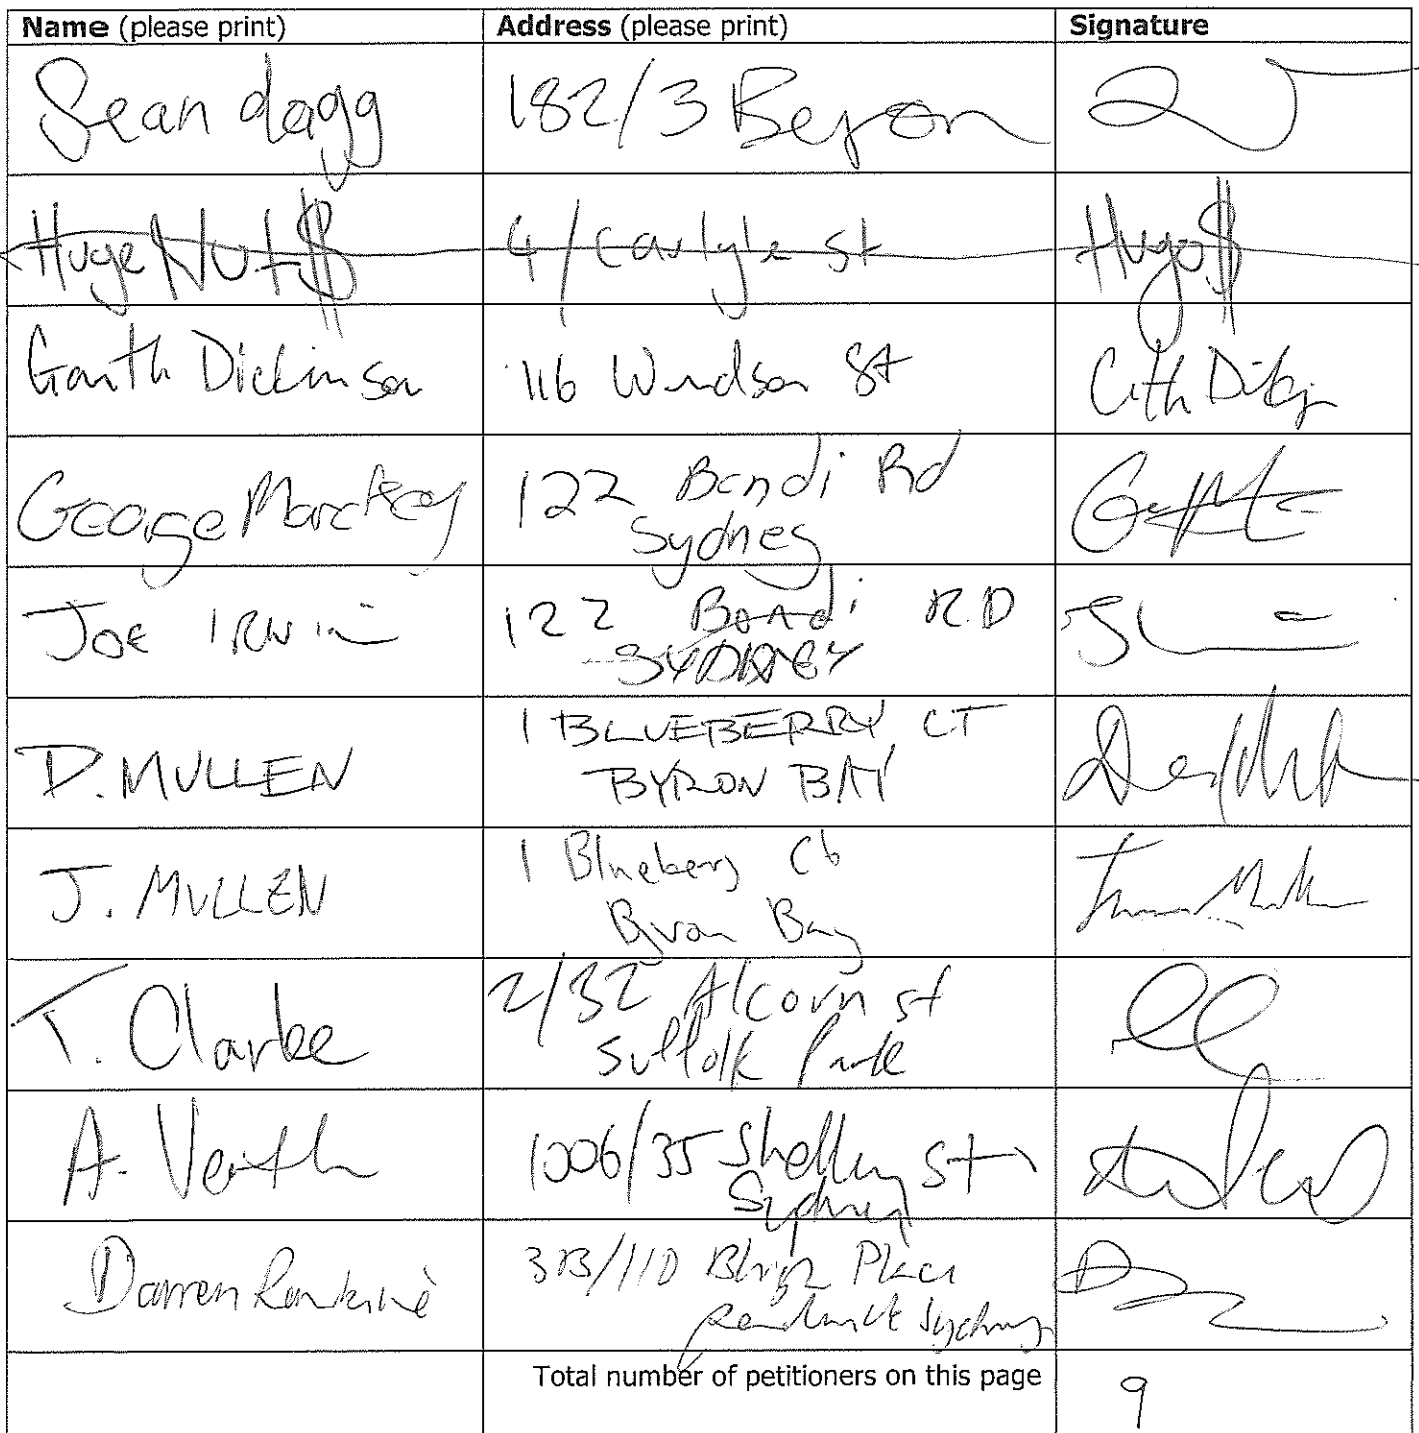 Name (please print) Address (please print) Signature
Sean dagg 182/3 Beyron
Huge Nut$ 4/Carlyle st Hugo$
Garth Dickinson 116 Windsor St
George 122 Bondi Rd
Sydney
JOE IRWin 122 Bondi RD
SYDNEY
D. MULLEN 1 BLUEBERRY CT
BYRON BAY
J. MULLEN 1 Blueberry Ct
Byron Bay
T. Clarke 2/32 Alcorn st
Suffolk Park
A. Veitch 1006/35 Shelley St
Sydney
Darren 3B/110 Bligh Place
Randwick Sydney
Total number of petitioners on this page 9